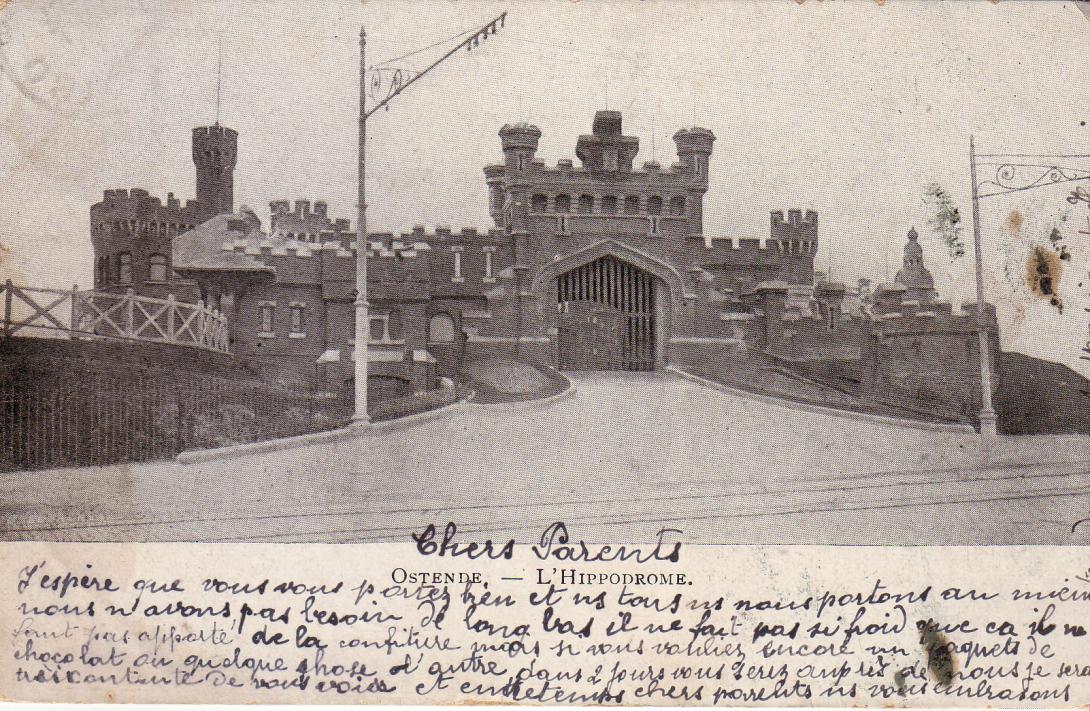 Chers Parents
OSTENDE. — L'HIPPODROME.
J'espère que vous vous portez bien et ns tous ns nous portons au mieux
nous n'avons pas besoin de long bas il ne fait pas si froid que ca il ne
faut pas apporté de la confiture mais si vous vouliez encore un paquets de
chocolat ou quelque chose d'autre dans 2 jours vous serez auprès de nous je serai
très contente de vous voir et entretemps chers parents ns vous embrasons